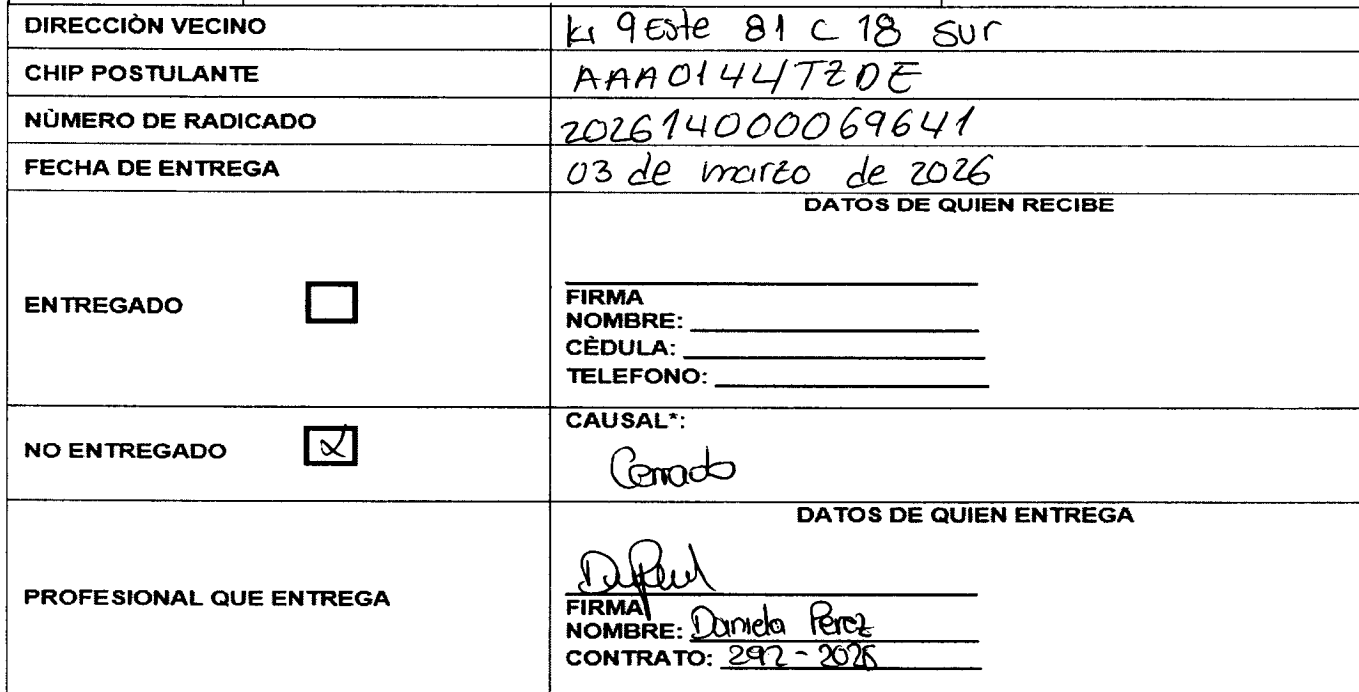 DIRECCIÒN VECINO Kr 9 Este 81 C 18 Sur
CHIP POSTULANTE AAA0144TZDE
NÙMERO DE RADICADO 202614000069641
FECHA DE ENTREGA 03 de marzo de 2026
DATOS DE QUIEN RECIBE
ENTREGADO
FIRMA
NOMBRE:
CÈDULA:
TELEFONO:
NO ENTREGADO X
CAUSAL*:
Cerrado
DATOS DE QUIEN ENTREGA
PROFESIONAL QUE ENTREGA
FIRMA
NOMBRE: Daniela Perez
CONTRATO: 292 - 2026